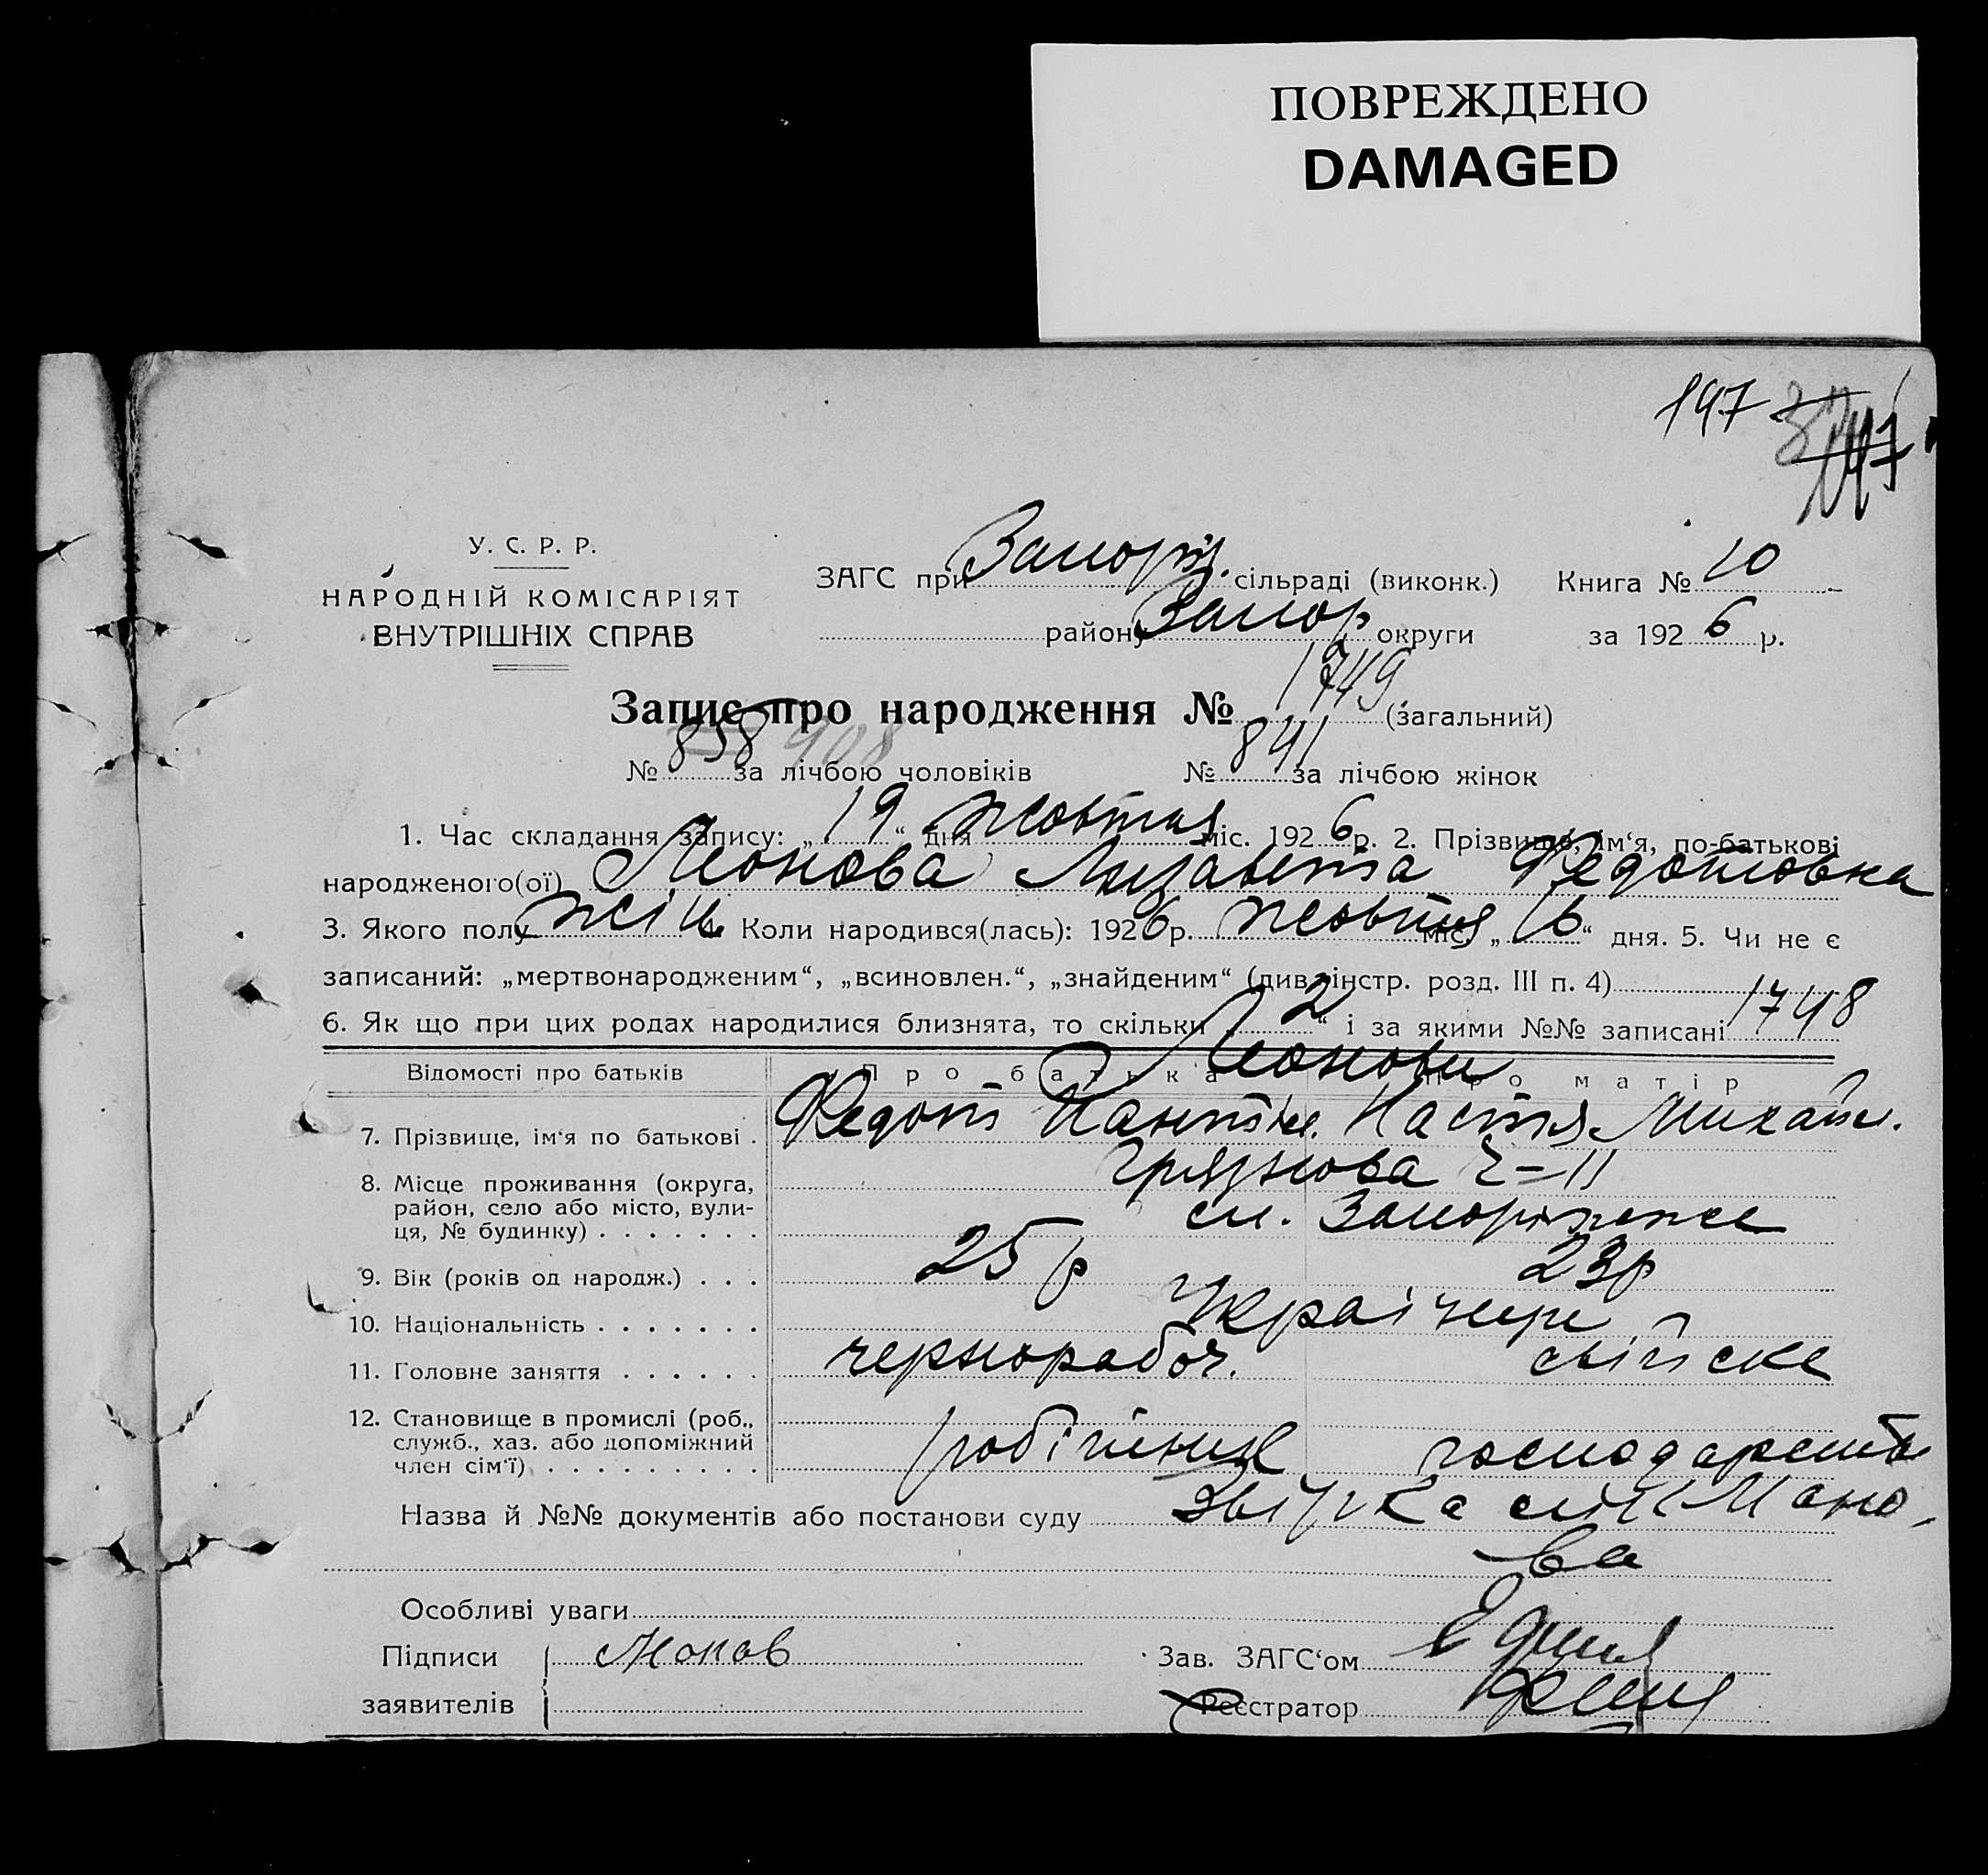 ПОВРЕЖДЕНО
DAMAGED
197
У. С. Р. Р.
НАРОДНІЙ КОМІСАРІЯТ
ВНУТРІШНІХ СПРАВ
ЗАГС при Запоріз. сільраді (виконк.) Книга № 10
району Запор округи за 1926 р.
Запис про народження № 1749 (загальний)
№ 858 908 за лічбою чоловіків № 891 за лічбою жінок
1. Час складання запису: „19“ дня жовтня міс. 1926 р. 2. Прізвище, ім‘я, по-батькові
народженого(ої) Леонова Лизавета Федотовна
3. Якого полу жін 4. Коли народився(лась): 1926 р. жовтня міс. „16“ дня. 5. Чи не є
записаний: „мертвонародженим“, „всиновлен.“, „знайденим“ (див. інстр. розд. III п. 4)
6. Як що при цих родах народилися близнята, то скільки „2“ і за якими №№ записані 1748
Відомості про батьків Про батька Про матір
Леонови
7. Прізвище, ім‘я по батькові . Федот Пантел. Настя Михайл.
8. Місце проживання (округа, район, село або місто, вулиця, № будинку) . . . . . . . Грязнова 2=11
см. Запоріжжє
9. Вік (років од народж.) . . . 25 р 23 р
10. Національність . . . . . . . Українці
11. Головне заняття . . . . . . чернорабоч. свійске
12. Становище в промислі (роб., служб., хаз. або допоміжний член сім‘ї) . . . . . . . . . робітник господарств
Назва й №№ документів або постанови суду Звірка
Особливі уваги
Підписи заявителів
Зав. ЗАГС‘ом
Реєстратор